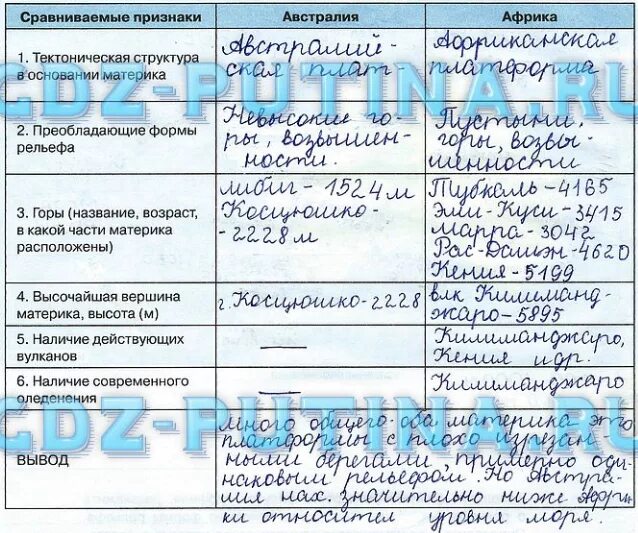 Сравниваемые признаки Австралия Африка
1. Тектоническая структура в основании материка
Австралий-
ская плат-
Африканская
платформа
2. Преобладающие формы рельефа
Невысокие го-
ры, возвышен-
ности.
Пустыни,
горы, возвы-
шенности
3. Горы (название, возраст,
в какой части материка
расположены)
либиг - 1524 м
Косцюшко -
- 2228 м
Тубкаль - 4165
Эми-Куси - 3415
марра - 3042
Рас-Дашэн - 4620
Кения - 5199
4. Высочайшая вершина
материка, высота (м)
г. Косцюшко - 2228
влк Килиманд-
жаро - 5895
5. Наличие действующих
вулканов
—
Килиманджаро,
Кения и др.
6. Наличие современного
оледенения
—
Килиманджаро
ВЫВОД
много общего оба материка это
платформы с плохо изрезан
ными берегами, примерно оди-
наковым рельефом. Но Австра-
лия нах. значительно ниже Афри
ки относител уровня моря.
GDZ-PUTINA.RU
GDZ-PUTINA.RU